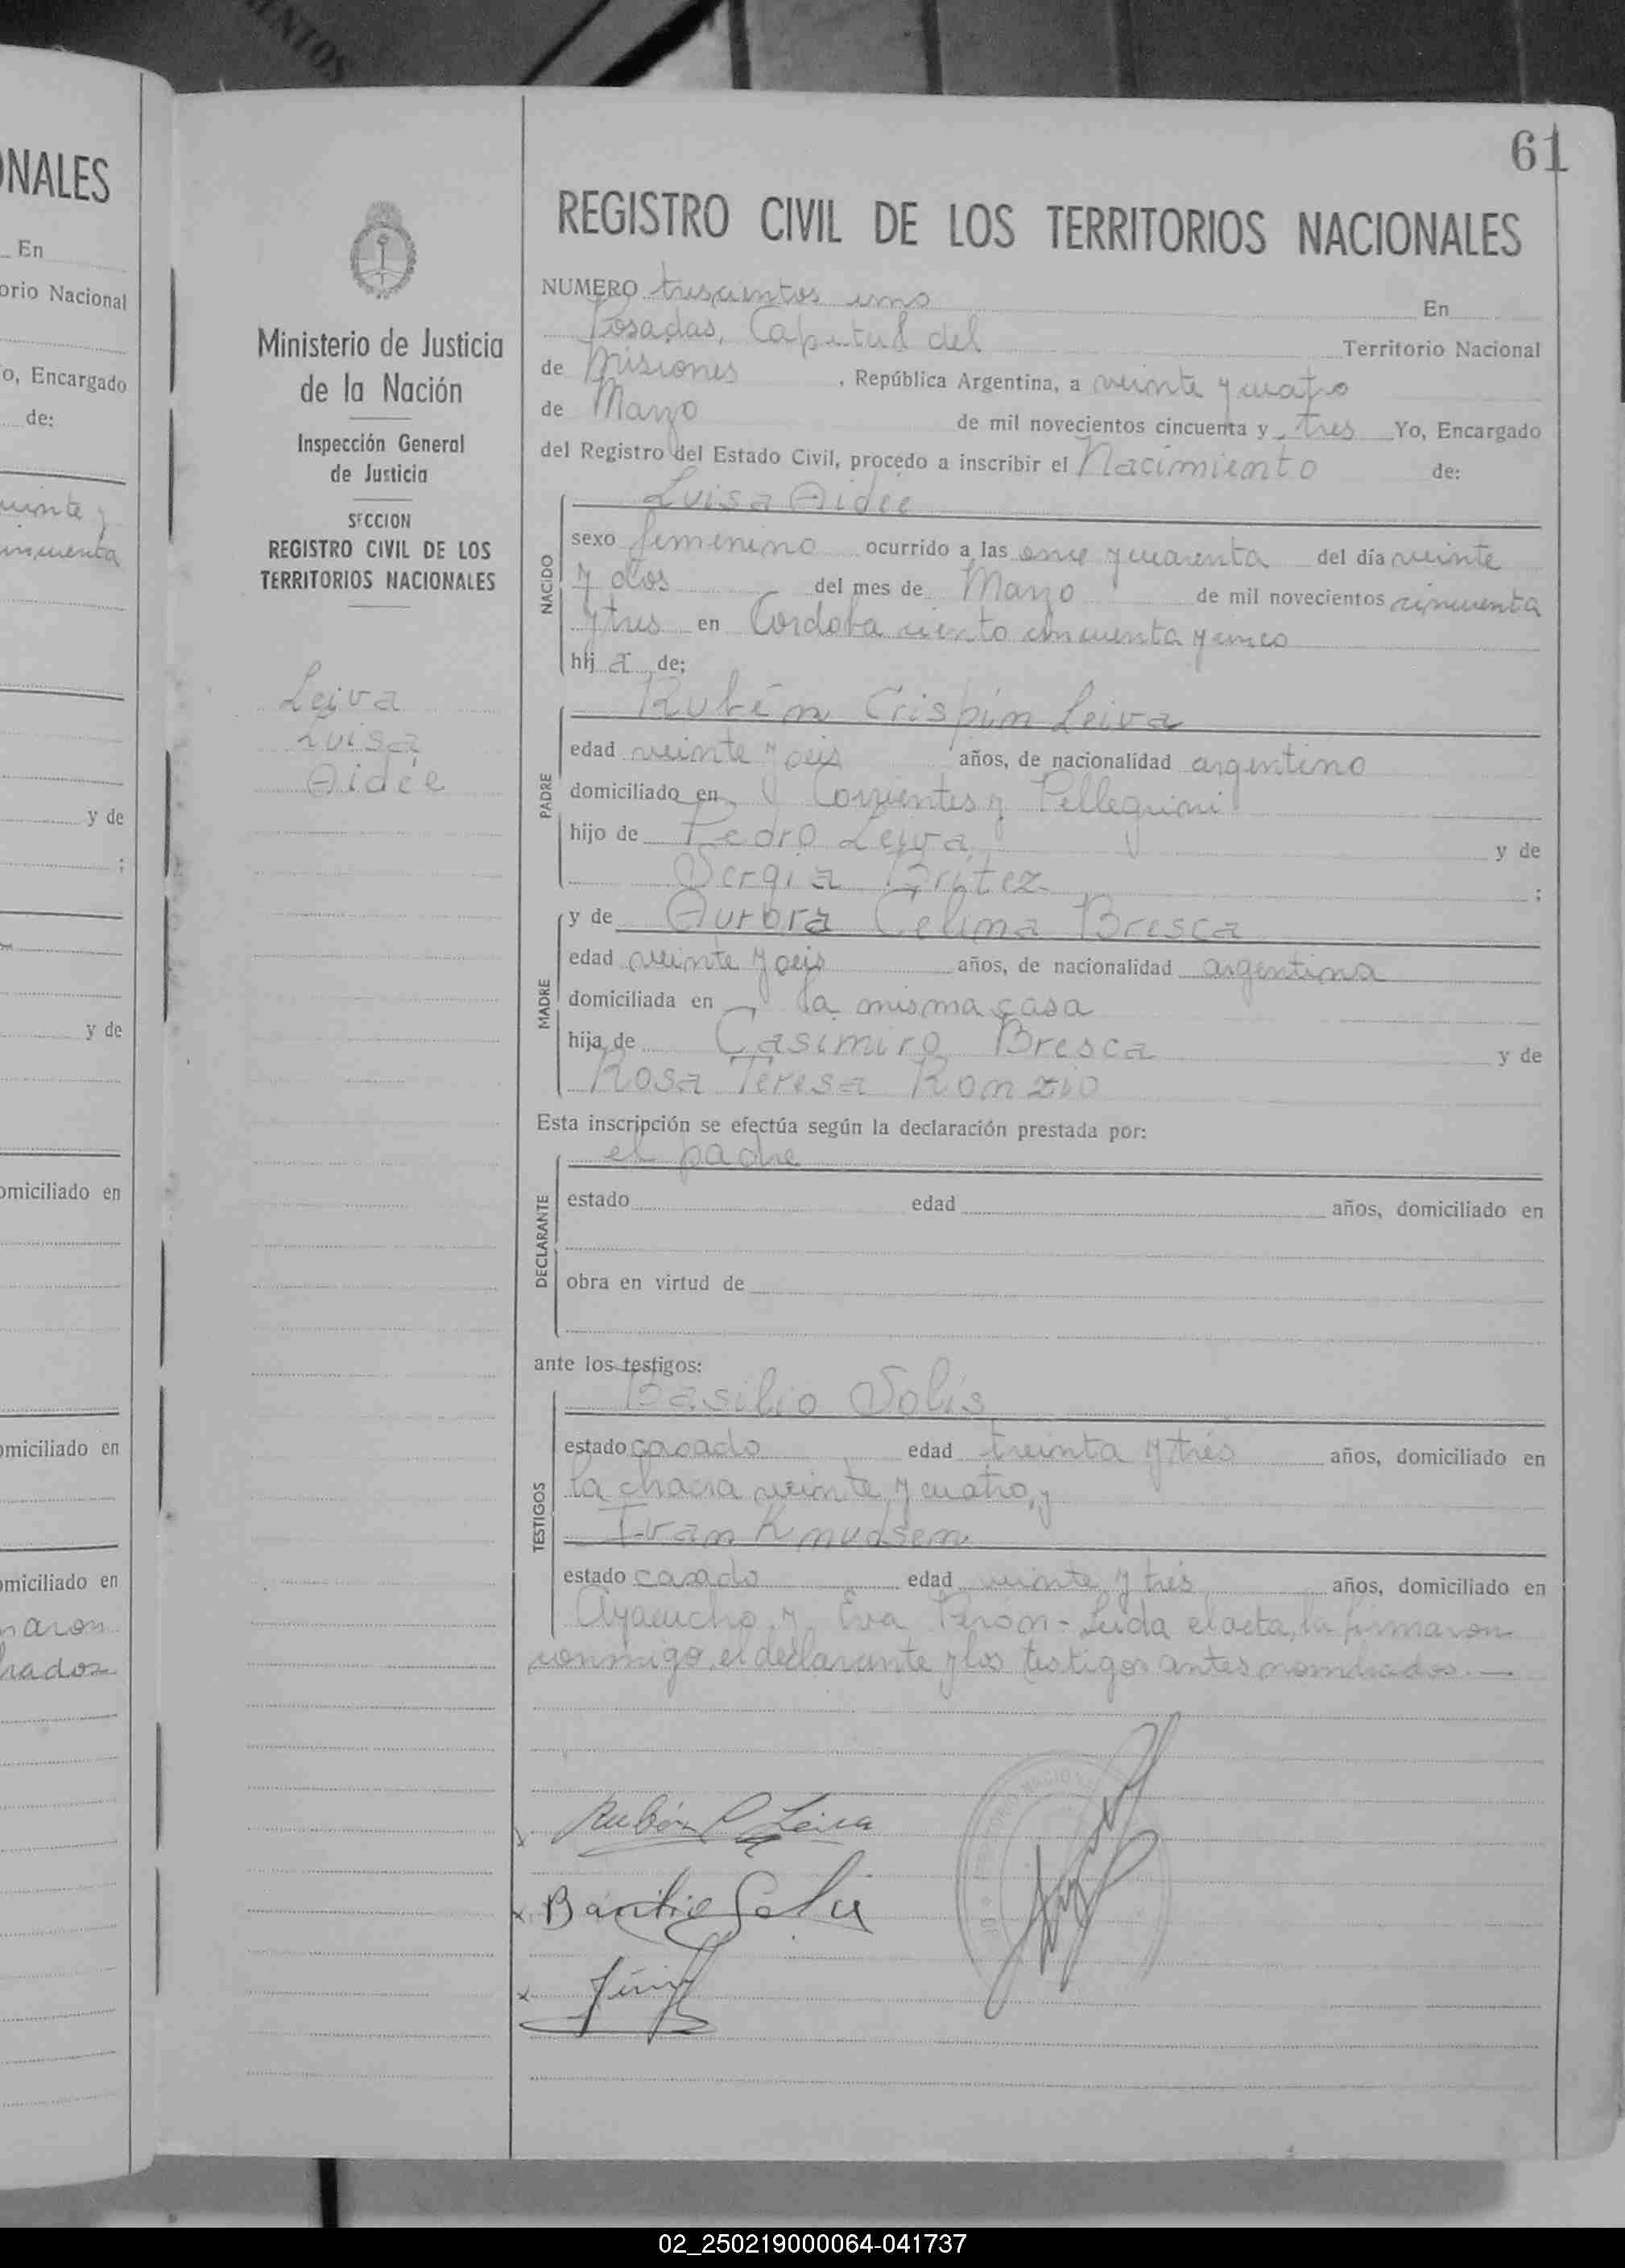 ENTOS
ONALES
En
orio Nacional
o, Encargado
de:
uinte y
incuenta
y de
;
y de
omiciliado en
omiciliado en
omiciliado en
maron
rados
61
Ministerio de Justicia
de la Nación
Inspección General
de Justicia
SECCION
REGISTRO CIVIL DE LOS
TERRITORIOS NACIONALES
Leiva
Luisa
Aidée
REGISTRO CIVIL DE LOS TERRITORIOS NACIONALES
NUMERO trescientos uno En
Posadas, Capital del Territorio Nacional
de Misiones, República Argentina, a veinte y cuatro
de Marzo de mil novecientos cincuenta y tres Yo, Encargado
del Registro del Estado Civil, procedo a inscribir el Nacimiento de:
Luisa Aidée
NACIDO
sexo femenino ocurrido a las once y cuarenta del día veinte
y dos del mes de Marzo de mil novecientos cincuenta
y tres en Cordoba ciento cincuenta y cinco
hij a de:
Rubén Crispín Leiva
PADRE
edad veinte y seis años, de nacionalidad argentino
domiciliado en Corrientes y Pellegrini
hijo de Pedro Leiva y de
Sergia Britez ;
y de Aurora Celina Bresca
MADRE
edad veinte y seis años, de nacionalidad argentina
domiciliada en la misma casa
hija de Casimiro Bresca y de
Rosa Teresa Ronzio
Esta inscripción se efectúa según la declaración prestada por:
el padre
DECLARANTE
estado edad años, domiciliado en
obra en virtud de
ante los testigos:
Basilio Solis
TESTIGOS
estado casado edad treinta y trés años, domiciliado en
la chacra veinte y cuatro, y
Ivan Knudsen
estado casado edad veinte y trés años, domiciliado en
Ayacucho y Eva Perón - Leida el acta, la firmaron
conmigo, el declarante y los testigos antes nombrados. —
Rubén C Leiva
x Basilio Solis
x
02_250219000064-041737